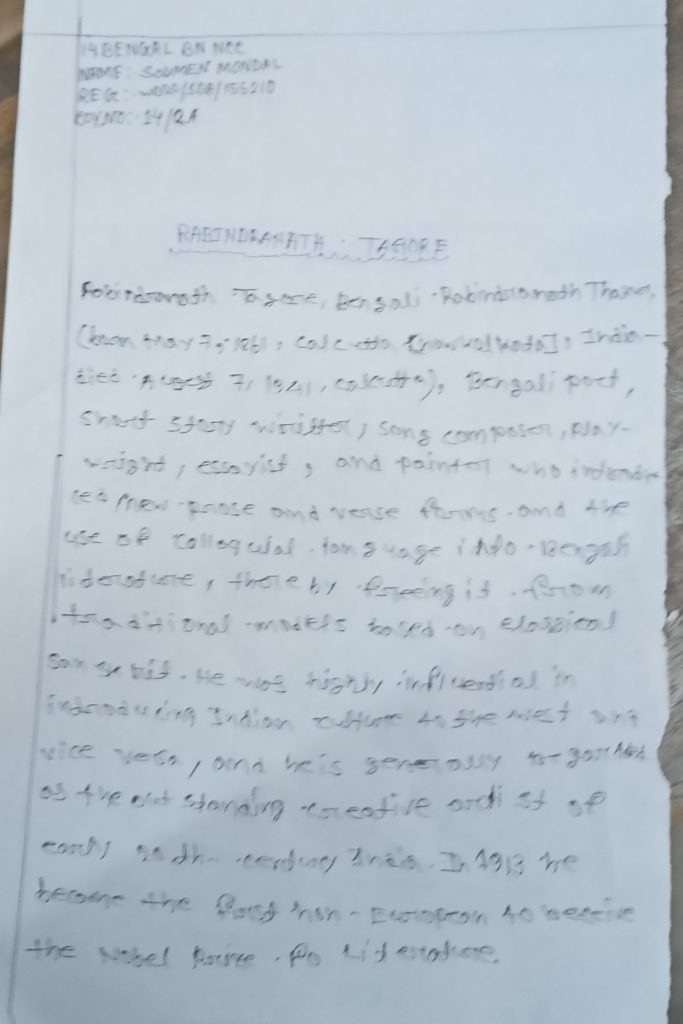 14 BENGAL BN NCC
NAME: SOUMEN MONDAL
REG:-
COY NO:- 14/2A
RABINDRANATH TAGORE
Rabindranath Tagore, Bengali Rabindranath
(born May 7, 1861, Calcutta India-
died August 7, 1941, Calcutta), Bengali poet,
short story writter, song composer, play-
wright, essayist, and painter who
new prose and verse forms and the
use of colloquial language into Bengali
there by freeing it from
traditional models based on classical
He was highly influential in
introducing Indian culture to the west and
vice versa, and he is generally
as the out standing creative artist of
early century India. In 1913 he
became the first non-European to receive
the Nobel